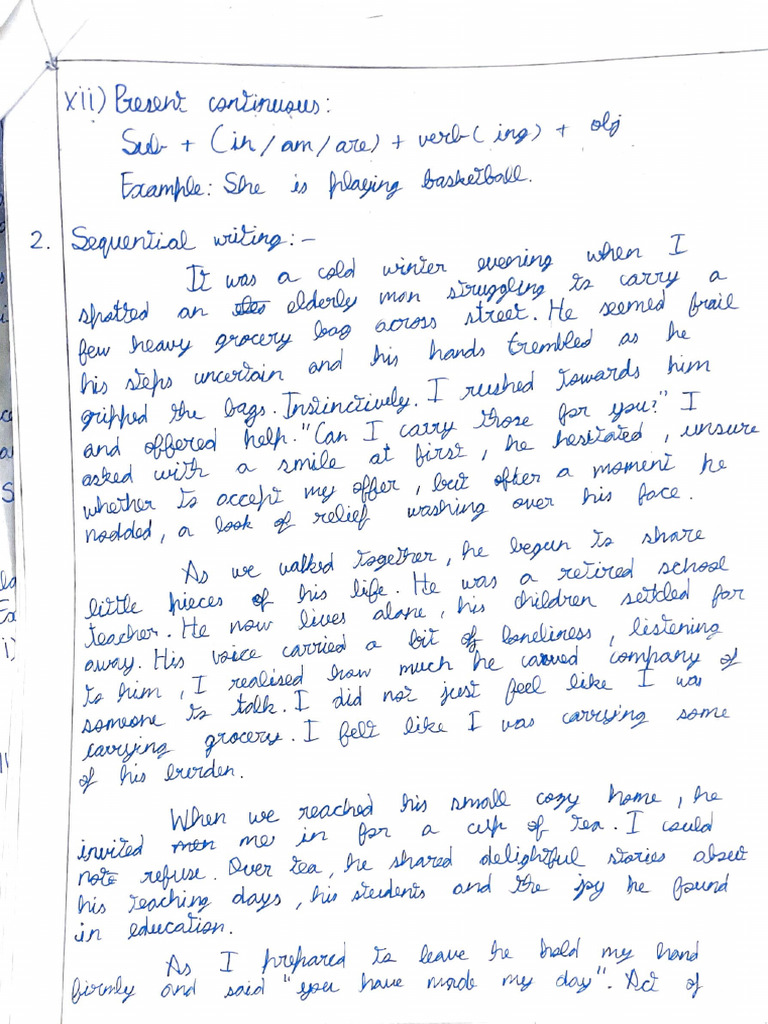 xii) Present continuous:
Sub + (in/am/are) + verb(ing) + obj
Example: She is playing basketball.
2. Sequential writing:-
It was a cold winter evening when I
spotted an elderly man struggling to carry a
few heavy grocery bag across street. He seemed frail
his steps uncertain and his hands trembled as he
gripped the bags. Instinctively. I rushed towards him
and offered help. "Can I carry those for you?" I
asked with a smile at first, he hesitated, unsure
whether to accept my offer, but after a moment he
nodded, a look of relief washing over his face.
As we walked together, he begun to share
little pieces of his life. He was a retired school
teacher. He now lives alone, his children settled far
away. His voice carried a bit of loneliness, listening
to him, I realised how much he caved company of
someone to talk. I did not just feel like I was
carrying grocery. I felt like I was carrying some
of his burden.
When we reached his small cozy home, he
invited me in for a cup of tea. I could
not refuse. Over tea, he shared delightful stories about
his teaching days, his students and the joy he found
in education.
As I prepared to leave he hold my hand
firmly and said "you have made my day". Act of